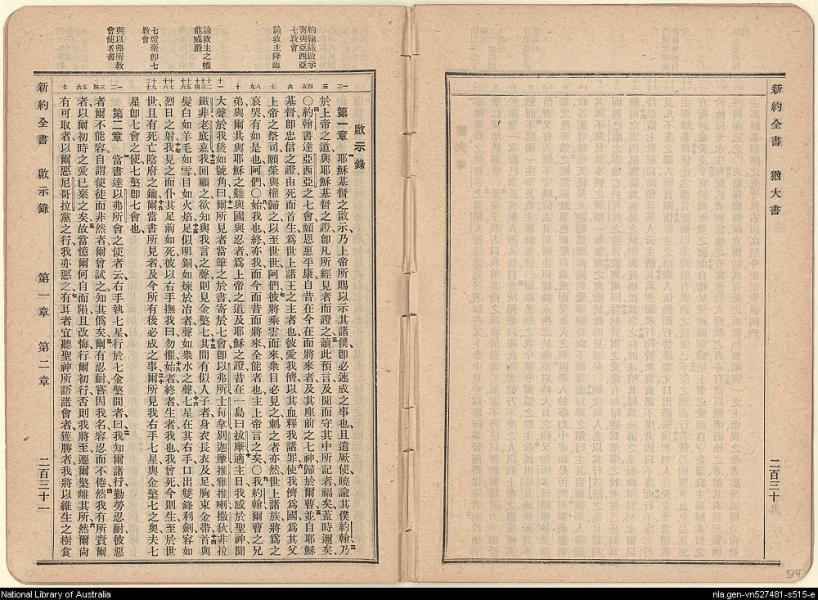 新約全書 猶大書 二百三十
約翰錄啟示
寄與亞西亞
七教會
論救主降臨
論救主之權
能威嚴
七燈臺卽七
教會
與以弗所教
會使者書
啟示錄
第一章 耶穌基督之啟示乃上帝所賜以示其諸僕卽必速成之事也且遣厥使曉諭其僕約翰乃
於上帝之道與耶穌基督之證卽凡所經見者而證之讀此預言及聞而守其中所記者福矣蓋時邇矣
〇約翰書達亞西亞之七會願恩惠平康自昔在今在而將來者及其座前之七神歸於爾曹並自耶穌
基督卽忠信之證由死而首生爲世上諸王之主者也彼愛我儕以其血釋我諸罪使我儕爲國爲其父
上帝之祭司願榮與權歸之以至世世阿們彼將乘雲而來衆目必見之刺之者亦然世上諸族將爲之
哀哭有如是也阿們〇始我也終亦我而今而昔而將來全能者也主上帝言之矣〇我約翰爾曹之兄
弟與爾共與耶穌之難與國與忍者爲上帝之道及耶穌之證昔在一島曰拔摩適主日我感於聖神聞
大聲於我後如號角曰爾所見者當筆之於書寄於七會卽以弗所士每拿別迦摩推雅推喇撒狄非拉
鐵非老底嘉我回顧之欲知與我言之聲則見金檠七其間有似人子者身衣長衣及足胸束金帶首與
髮白如羊毛如雪目如火焰足似明銅如煉於冶者聲如衆水之聲七星在其右手口出雙鋒利劍容如
烈日之射我見之而仆其足前如死彼以右手撫我曰勿懼始者終者生者我也我曾死今則生至於世
世且有死亡陰府之鑰爾當書所見者及今所有後必成之事爾所見我右手七星與金檠七之奧夫七
星卽七會之使七檠卽七會也
第二章 當書達以弗所會之使者云右手執七星行於七金檠間者曰我知爾諸行勤勞忍耐彼惡
者爾不能容自謂使徒而非然者爾曾試之知其僞矣爾有忍耐嘗因我名容忍而不倦然我有所責爾
者以爾初時之愛已棄之矣故當憶爾何自而隕且改悔行爾初行否則我將至遷爾檠離其所然爾尚
有可取者以爾惡尼哥拉黨之行我亦惡之有耳者宜聽聖神所語諸會者獲勝者我將以維生之樹食
新約全書 啟示錄 第一章 第二章 二百三十一
514
National Library of Australia
nla.gen-vn527481-s515-e